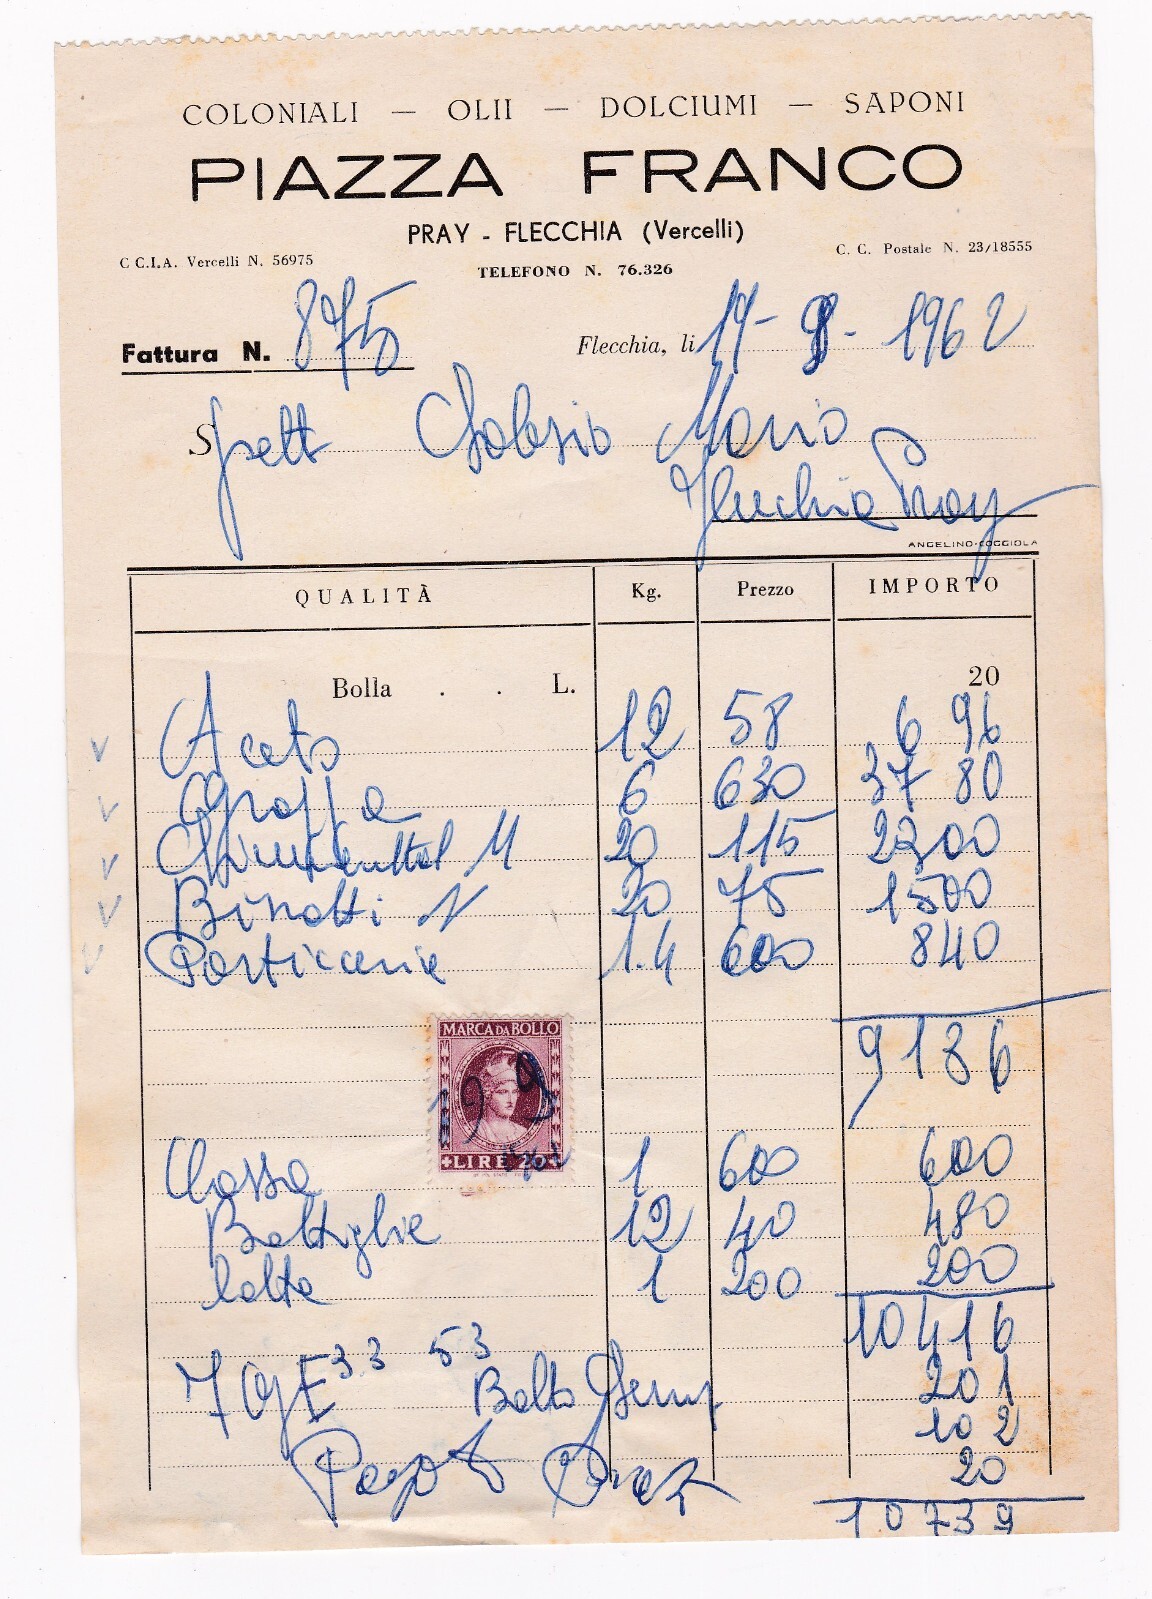 COLONIALI — OLII — DOLCIUMI — SAPONI
PIAZZA FRANCO
PRAY - FLECCHIA (Vercelli)
C C.I.A. Vercelli N. 56975
TELEFONO N. 76.326
C. C. Postale N. 23/18555
Fattura N. 875
Flecchia, li 19- 9 - 1962
Spett Mario
Flecchia Pray
ANGELINO-COGGIOLA
QUALITÀ Kg. Prezzo IMPORTO
Bolla . . L. 20
Aceto 12 58 6 96
Grappa 6 630 37 80
M 20 115 2300
Binotti N 20 75 1500
Pasticcerie 1.4 600 840
9136
MARCA DA BOLLO
19 9
LIRE 20
Cassa 1 600 600
Bottiglie 12 40 480
latta 1 200 200
10416
IGE 33 53 201
Bollo 102
20
Pagato
10739